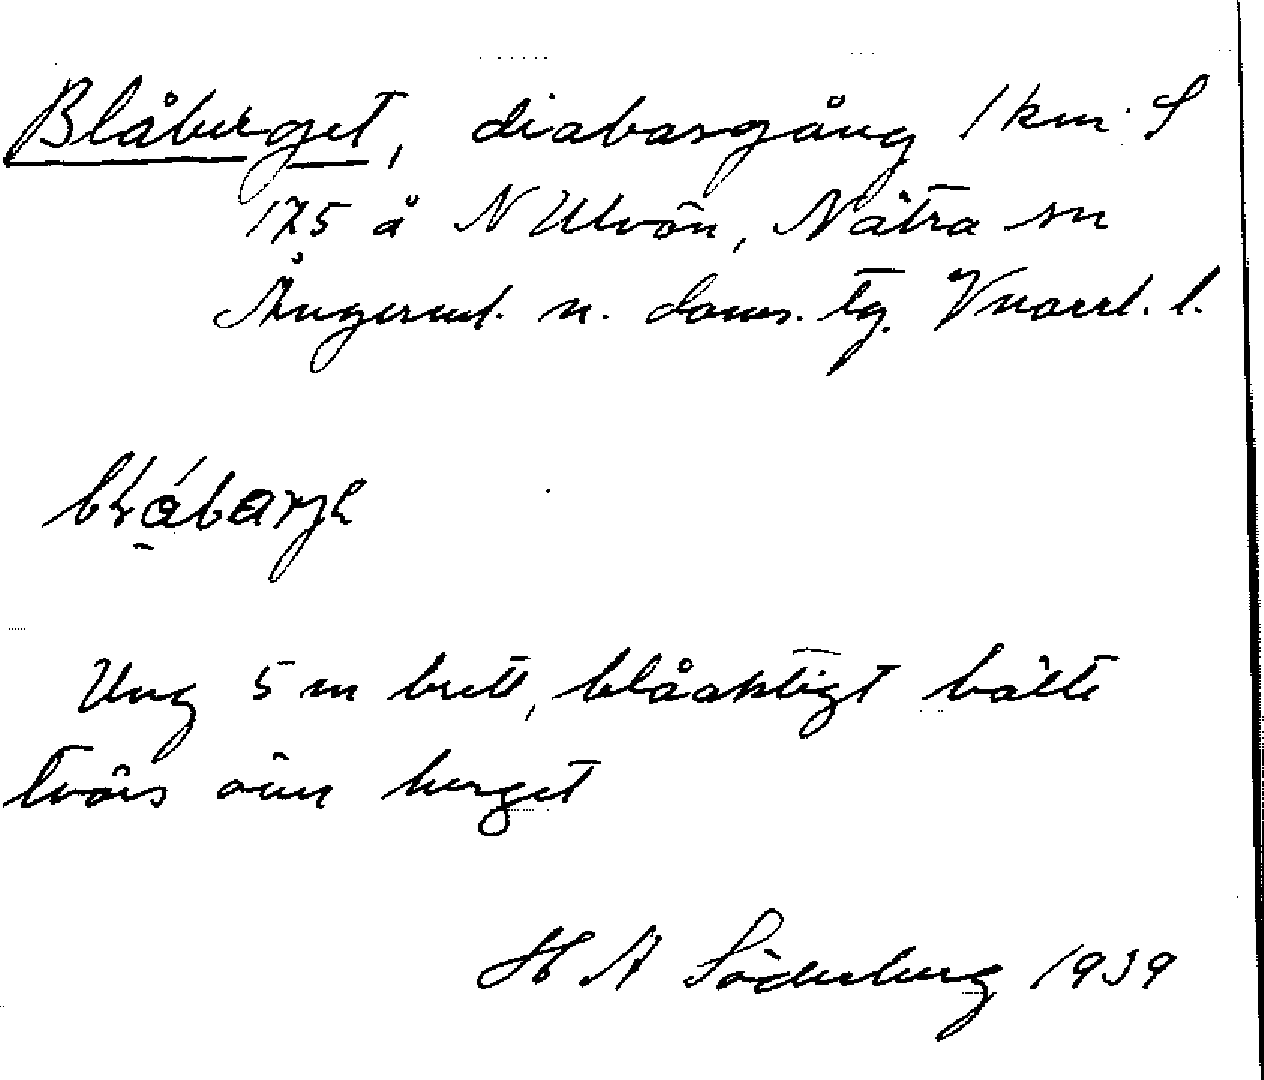 Blåberget, diabasgång 1 km S
175 å N Ulvön, Nätra sn
Ångerml. n. doms. tg. Vnorrl. l.
blåbarje
Ung 5 m brett, blåaktigt bälte
tvärs över berget
H A Söderberg 1939